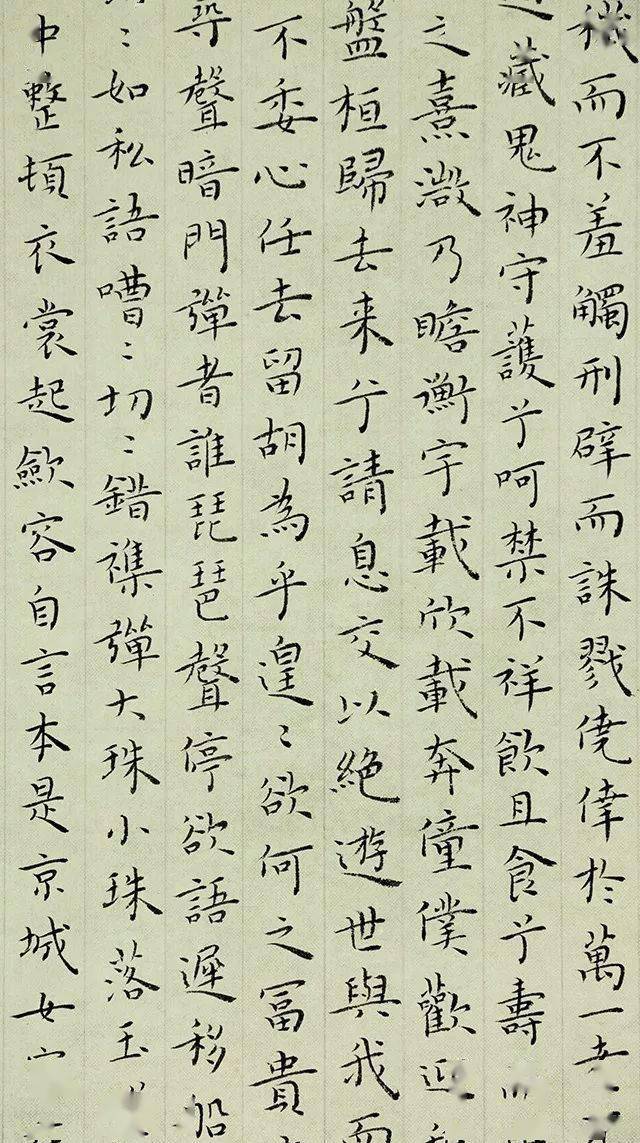 穢而不羞觸刑辟而誅戮僥倖於萬一
藏鬼神守護兮呵禁不祥飲且食兮壽
之熹微乃瞻衡宇載欣載奔僮僕歡迎
盤桓歸去来兮請息交以絶遊世與我而
不委心任去留胡為乎遑〻欲何之冨貴
尋聲暗問彈者誰琵琶聲停欲語遲移船
〻如私語嘈〻切〻錯襍彈大珠小珠落玉
中整頓衣裳起歛容自言本是京城女